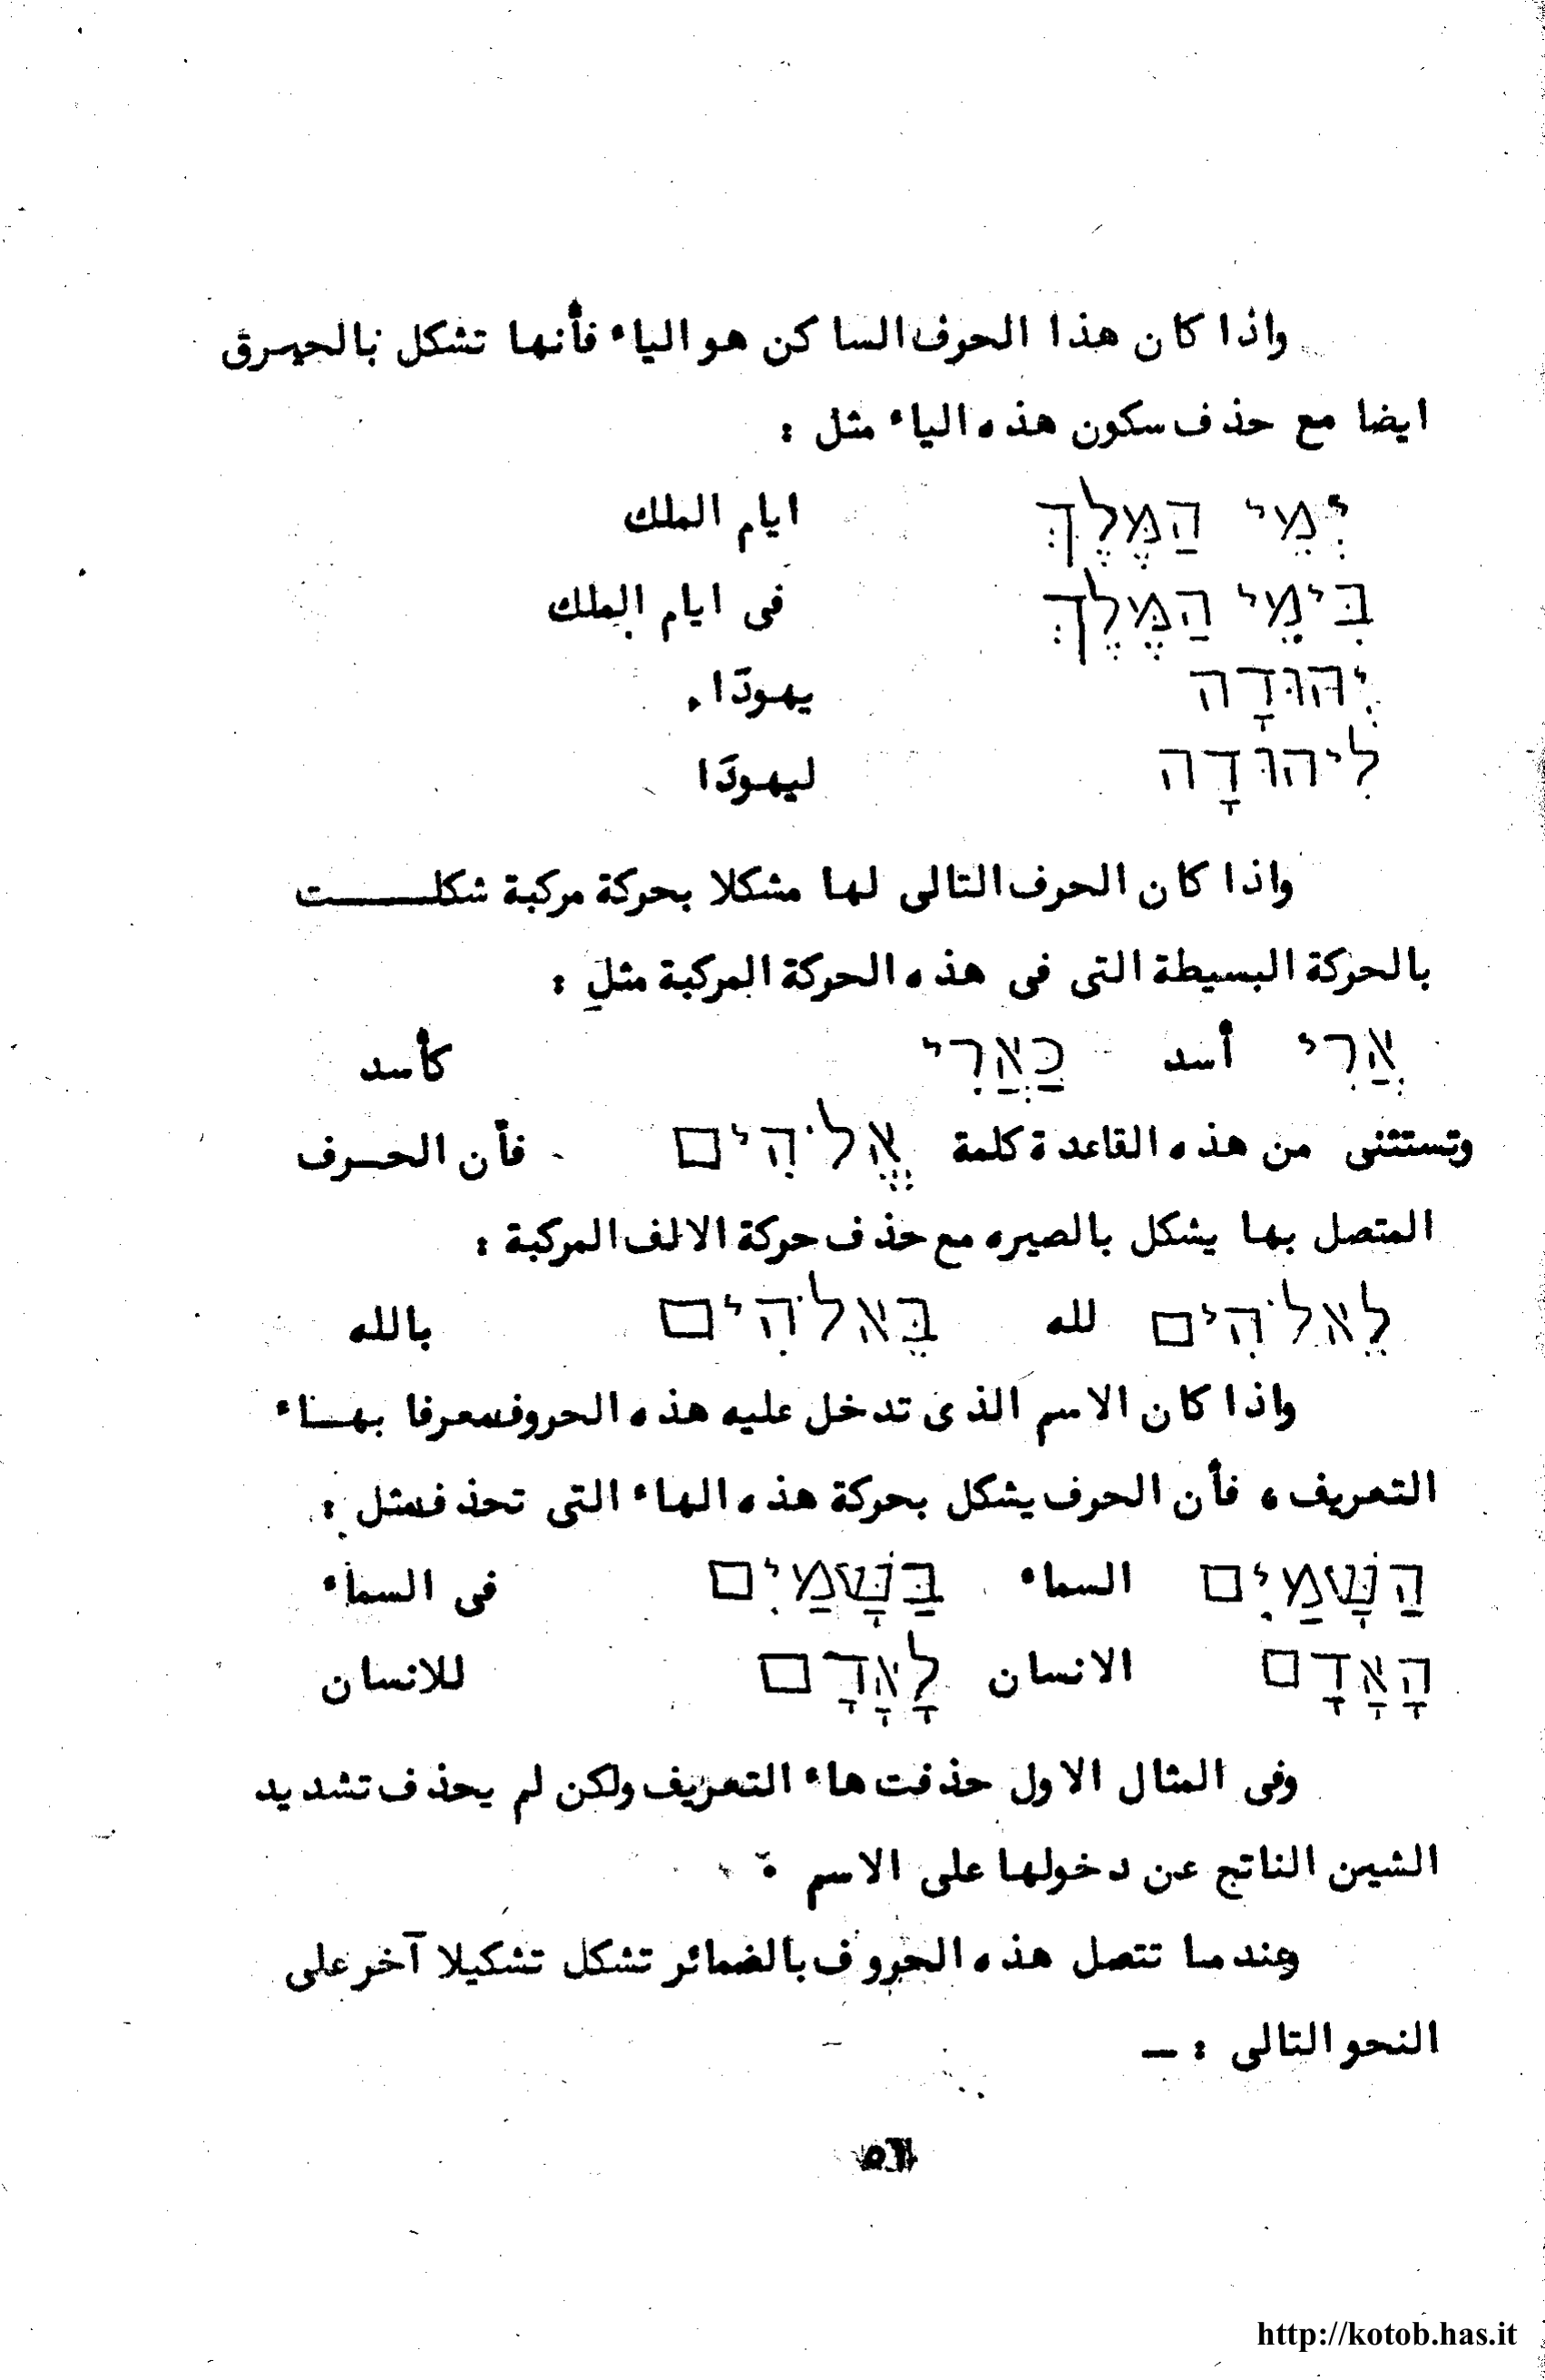 واذا كان هذا الحرف الساكن هو الياء فأنها تشكل بالحيرق
ايضا مع حذف سكون هذه الياء مثل :
יְמֵי הַמֶּלֶךְ ايام الملك
בִּימֵי הַמֶּלֶךְ فى ايام الملك
יְהוּדָה يهوذا
לִיהוּדָה ليهوذا
واذا كان الحرف التالى لها مشكلا بحركة مركبة شكلت
بالحركة البسيطة التى فى هذه الحركة المركبة مثل :
אֲרִי أسد כַּאֲרִי كأسد
وتستثنى من هذه القاعدة كلمة אֱלֹהִים فأن الحرف
المتصل بها يشكل بالصيره مع حذف حركة الالف المركبة :
לֵאלֹהִים لله בֵּאלֹהִים بالله
واذا كان الاسم الذى تدخل عليه هذه الحروف معرفا بهاء
التعريف ، فأن الحرف يشكل بحركة هذه الهاء التى تحذف مثل :
הַשָּׁמַיִם السماء בַּשָּׁמַיִם فى السماء
הָאָדָם الانسان לָאָדָם للانسان
وفى المثال الاول حذفت هاء التعريف ولكن لم يحذف تشديد
الشين الناتج عن دخولها على الاسم .
وعندما تتصل هذه الحروف بالضمائر تشكل تشكيلا آخر على
النحو التالى : —
http://kotob.has.it